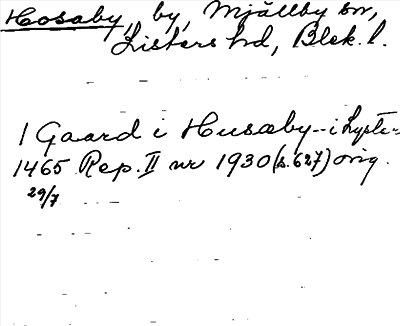 Hosaby, by, Mjällby sn,
Listers hd, Blek. l.
1 Gaard i Husæby -- i Lyste=
1465 Rep. II nr 1930 (s. 627) orig.
29/7